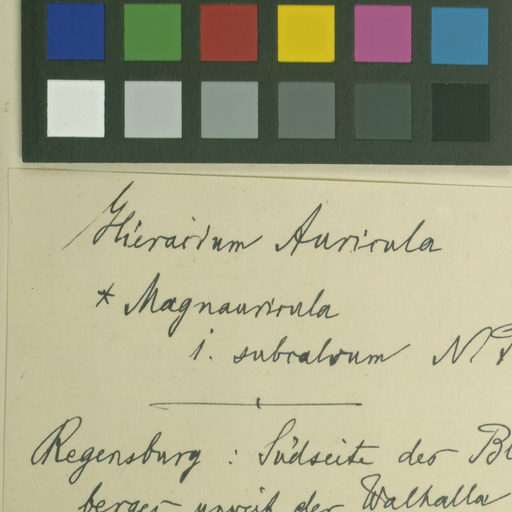 Hieracium Auricula
* Magnauricula
i. subcalvum N
Regensburg : Südseite des
berges unweit der Walhalla